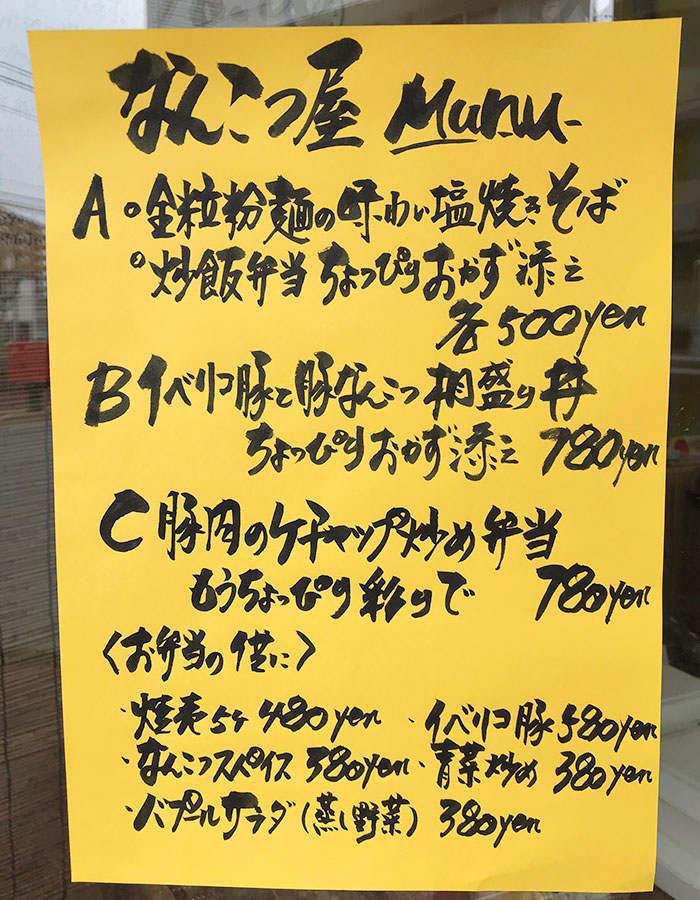 なんこつ屋 Manu
A・全粒粉麺の味わい塩焼きそば
・炒飯弁当 ちょっぴりおかず添え
各500yen
B イベリコ豚と豚なんこつ相盛り丼
ちょっぴりおかず添え 780yen
C 豚肉のケチャップ炒め弁当
もうちょっぴり彩りで 780yen
〈お弁当の供に〉
・焼売5ヶ 480yen ・イベリコ豚 580yen
・なんこつスパイス 380yen ・青菜炒め 380yen
・バプールサラダ(蒸し野菜) 380yen